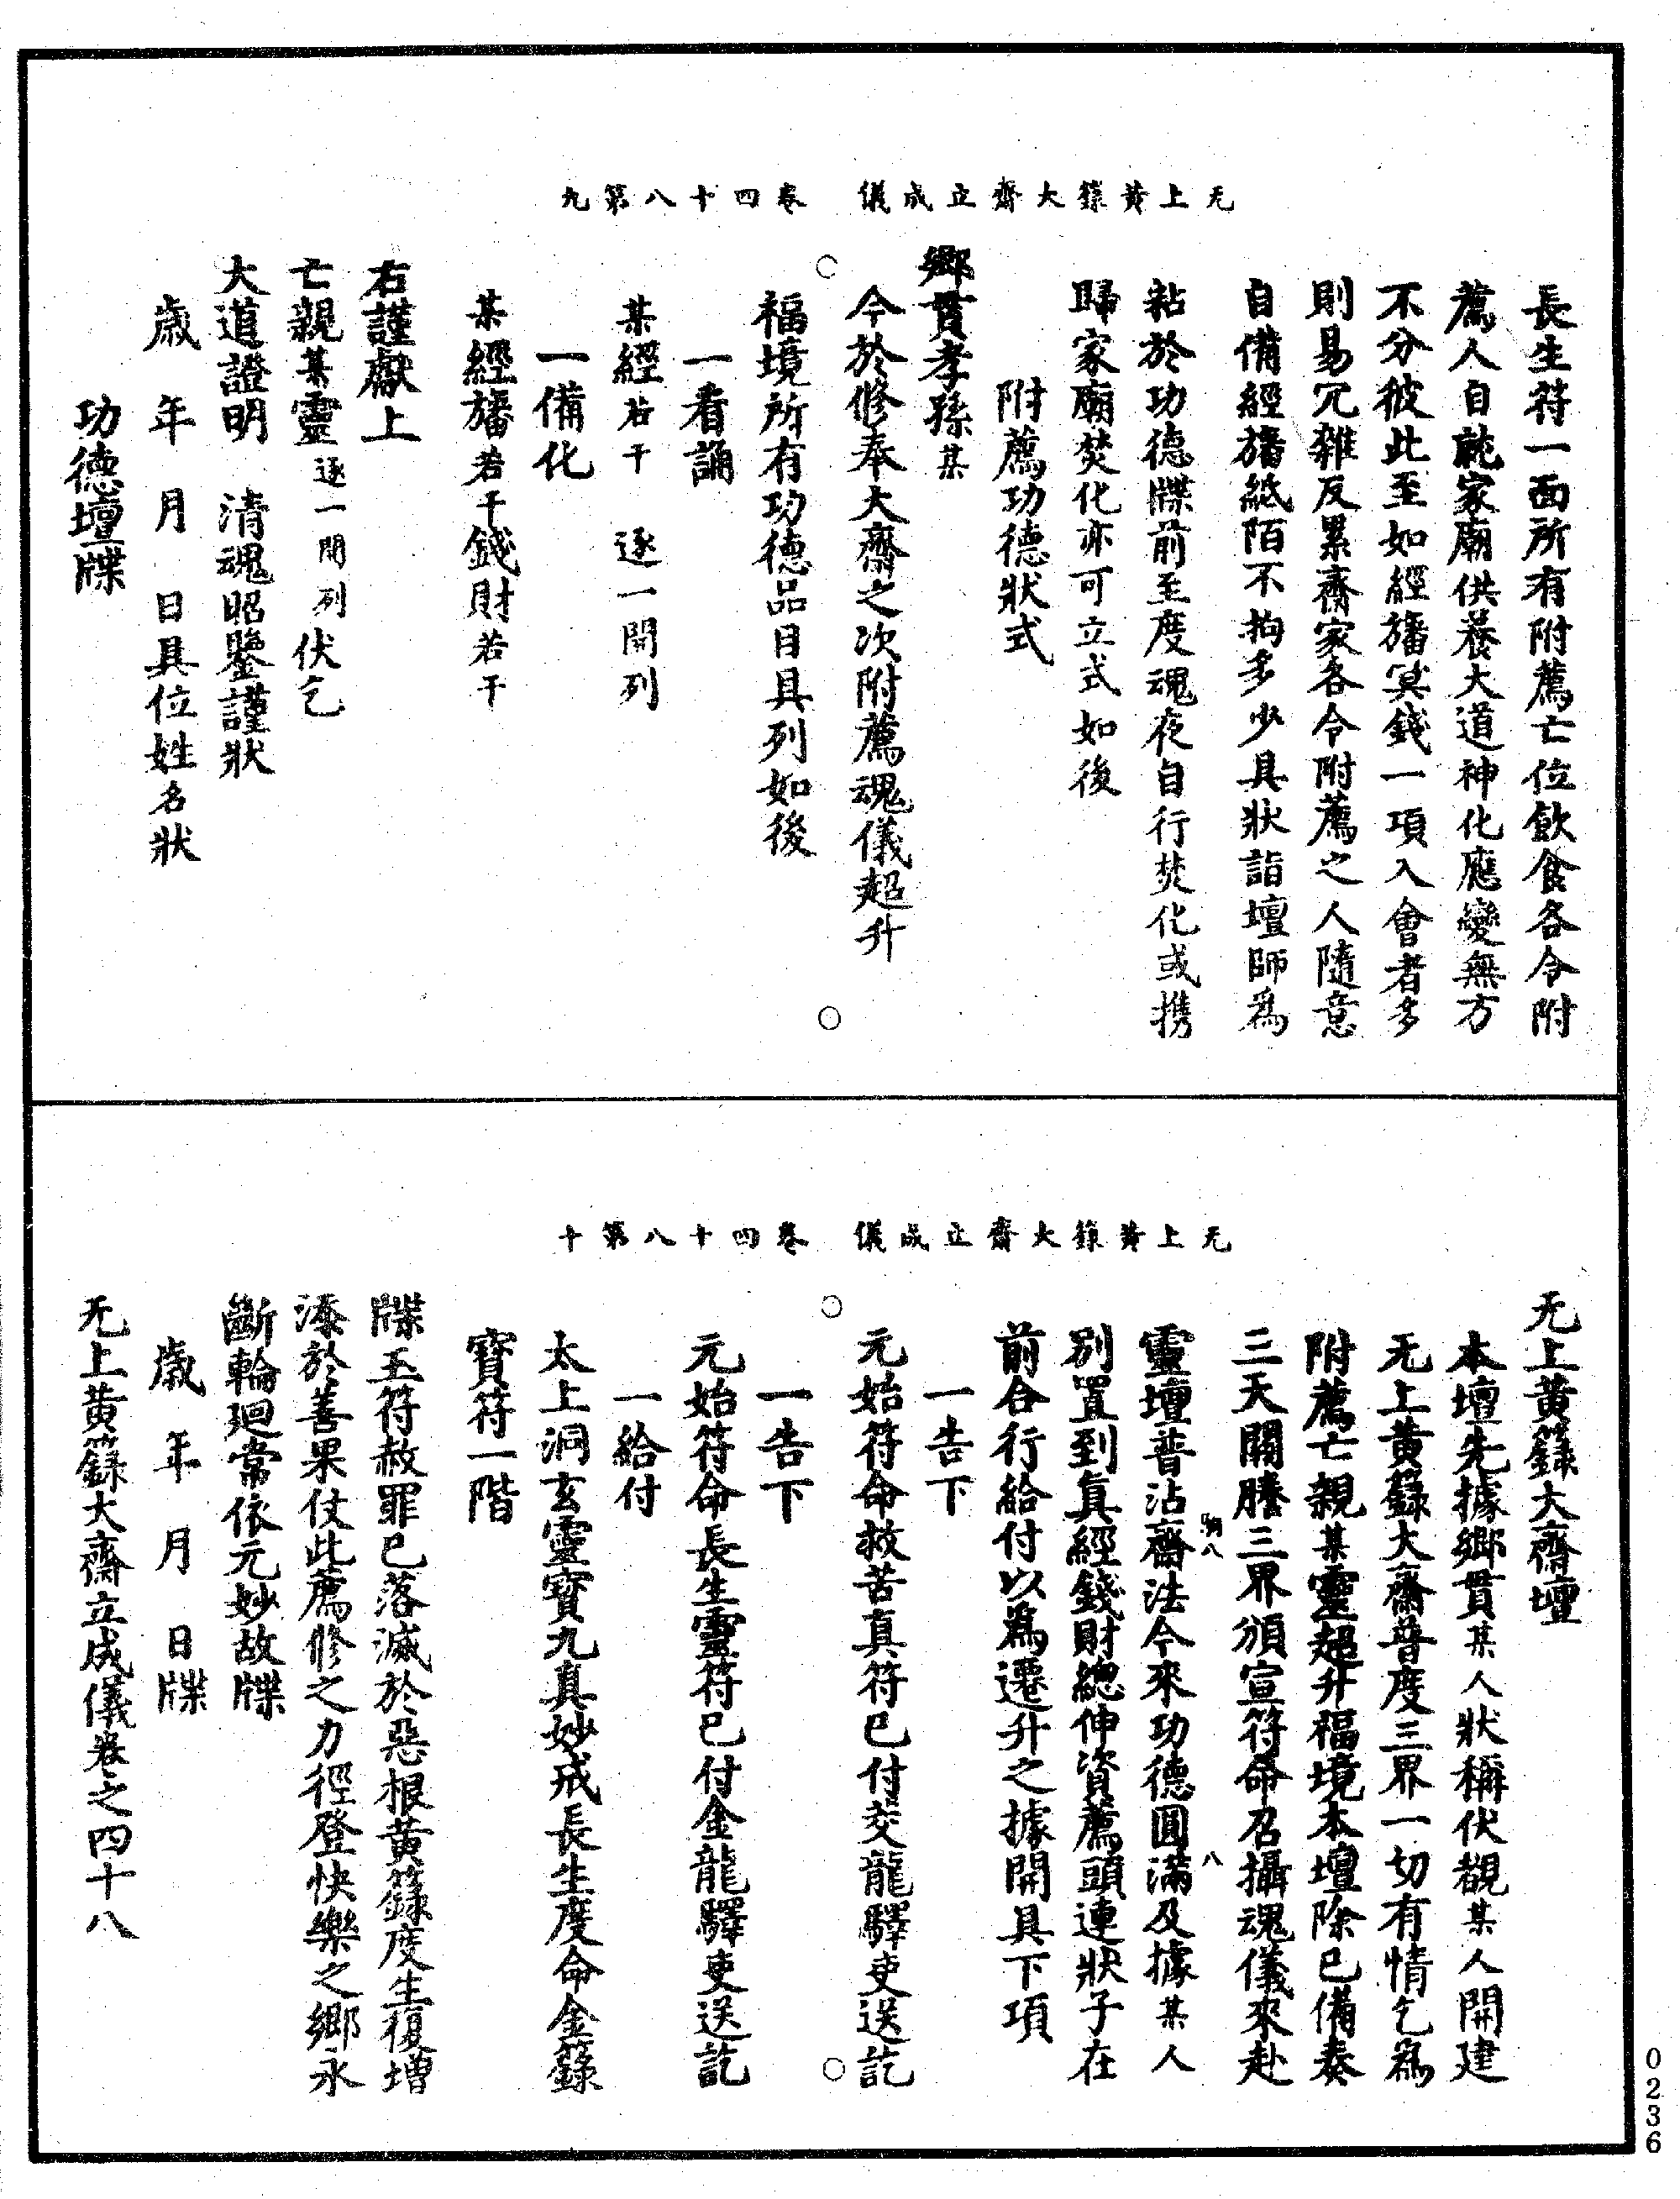 无上黃籙大齋立成儀　卷四十八第九
長生符一面所有附薦亡位飲食各令附
薦人自就家廟供養大道神化應變無方
不分彼此至如經旛冥錢一項入會者多
則易冗雜反累齋家各令附薦之人隨意
自備經旛紙陌不拘多少具狀詣壇師爲
粘於功德牒前至度魂夜自行焚化或携
歸家廟焚化亦可立式如後
附薦功德狀式
鄉貫孝孫某
今於修奉大齋之次附薦魂儀超升
福境所有功德品目具列如後
一看誦
某經若干　逐一開列
一備化
某經旛若干錢財若干
右謹獻上
亡親某靈逐一開列伏乞
大道證明　清魂昭鑒謹狀
歲　年　月　日具位姓名狀
功德壇牒
无上黃籙大齋立成儀　卷四十八第十
无上黃籙大齋壇
本壇先據鄉貫某人狀稱伏覩某人開建
无上黃籙大齋普度三界一切有情乞爲
附薦亡親某靈超升福境本壇除已備奏
三天關牒三界頒宣符命召攝魂儀來赴
八
靈壇普沾齋法今來功德圓滿及據某人
別置到真經錢財總伸資薦頭連狀子在
前合行給付以爲遷升之據開具下項
一告下
元始符命救苦真符已付交龍驛吏送訖
一告下
元始符命長生靈符已付金龍驛吏送訖
一給付
太上洞玄靈寶九真妙戒長生度命金籙
寶符一階
牒玉符赦罪已落滅於惡根黃籙度生復增
添於善果仗此薦修之力徑登快樂之鄉永
斷輪廻常依元妙故牒
歲　年　月　日牒
无上黃籙大齋立成儀卷之四十八
0236